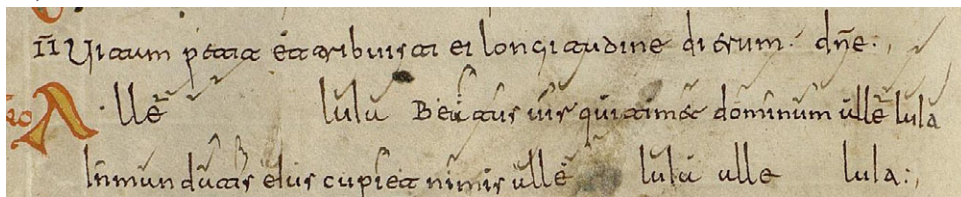 II Uitam petiit et tribuisti ei longitudine dierum. dñe.,
Alle lula Beatus uir qui timet dominum alle lula
In mandatis eius cupiet nimis alle lula alle lula:,